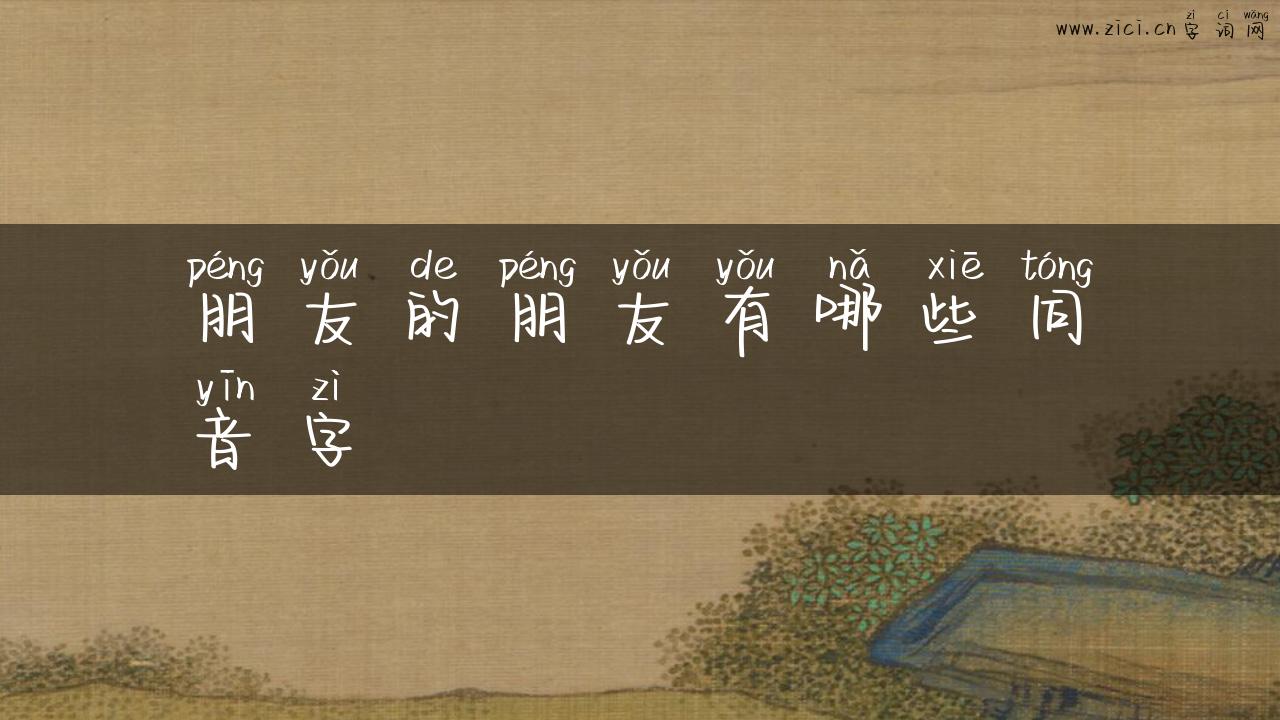 zì cí wǎng
www.zici.cn 字词网
péng yǒu de péng yǒu yǒu nǎ xiē tóng
朋友的朋友有哪些同
yīn zì
音字